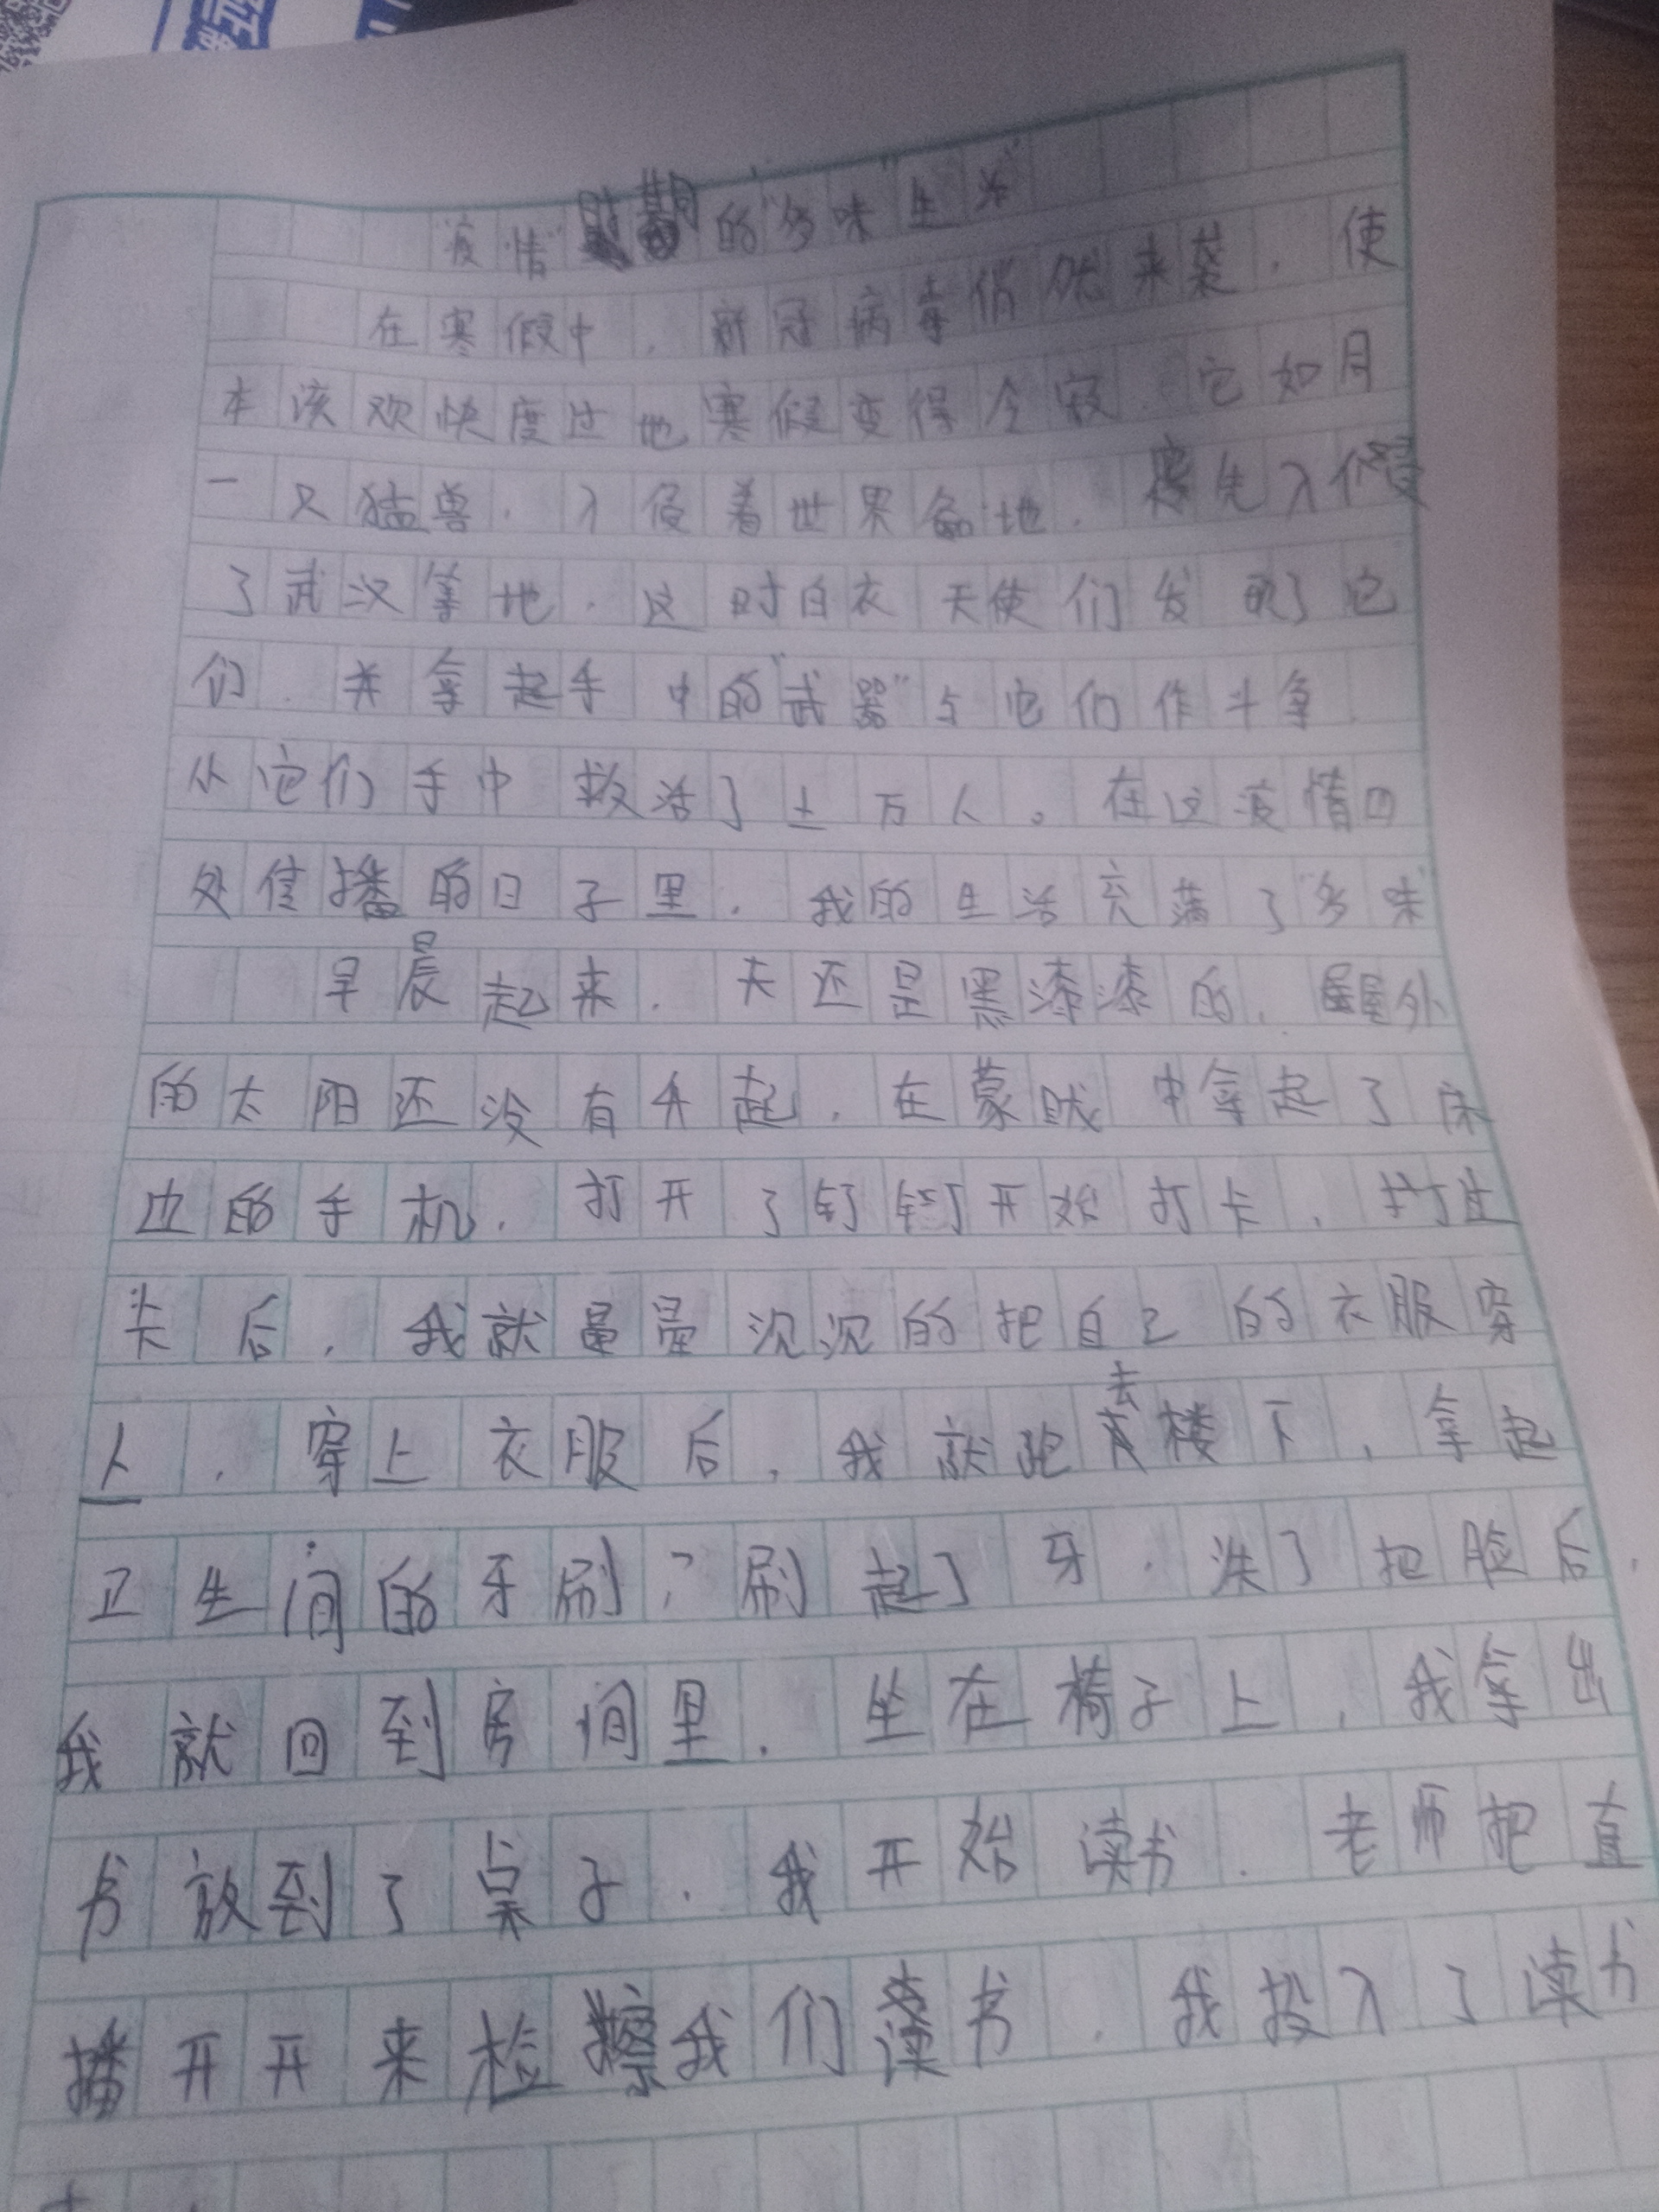 "疫情"期间的"多味"生活"
在寒假中，新冠病毒悄然来袭，使
本该欢快度过地寒假变得令寂，它如同
一又猛兽，入侵着世界各地，率先入侵
了武汉等地，这时白衣天使们发现了它
们，并拿起手中的"武器"与它们作斗争
从它们手中救活了上万人。在这疫情四
处传播的日子里，我的生活充满了"多味"
早晨起来，天还是黑漆漆的，屋外
的太阳还没有升起，在蒙眬中拿起了床
边的手机，打开了钉钉开始打卡，打过
卡后，我就昏昏沉沉的把自己的衣服穿
上，穿上衣服后，我就跑去楼下，拿起
卫生间的牙刷，刷起了牙，洗了把脸后，
我就回到房间里，坐在椅子上，我拿出
书放到了桌子，我开始读书，老师把直
播开开来检察我们读书，我投入了读书